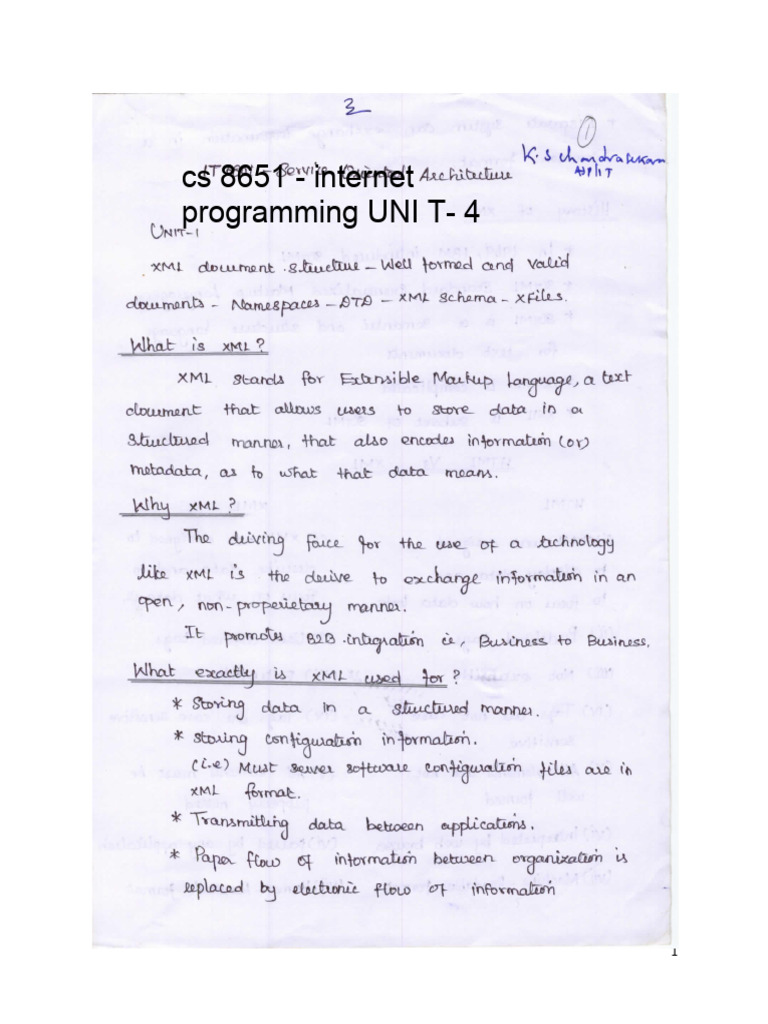 3
1
K.S chandrasekaran
AP/IT
Service Oriented Architecture
cs 8651 - internet
programming UNI T- 4
UNIT-1
XML document structure - Well formed and Valid
documents - Namespaces - DTD - XML Schema - XFiles.
What is XML?
XML stands for Extensible Markup Language, a text
document that allows users to store data in a
structured manner, that also encodes information (or)
metadata, as to what that data means.
Why XML?
The driving force for the use of a technology
like XML is the derive to exchange information in an
open, non-proprietary manner.
It promotes B2B integration ie, Business to Business.
What exactly is XML used for?
* Storing data in a structured manner.
* storing configuration information.
(i.e) Must server software configuration files are in
XML format.
* Transmitting data between applications.
* Paper flow of information between organization is
replaced by electronic flow of information
1